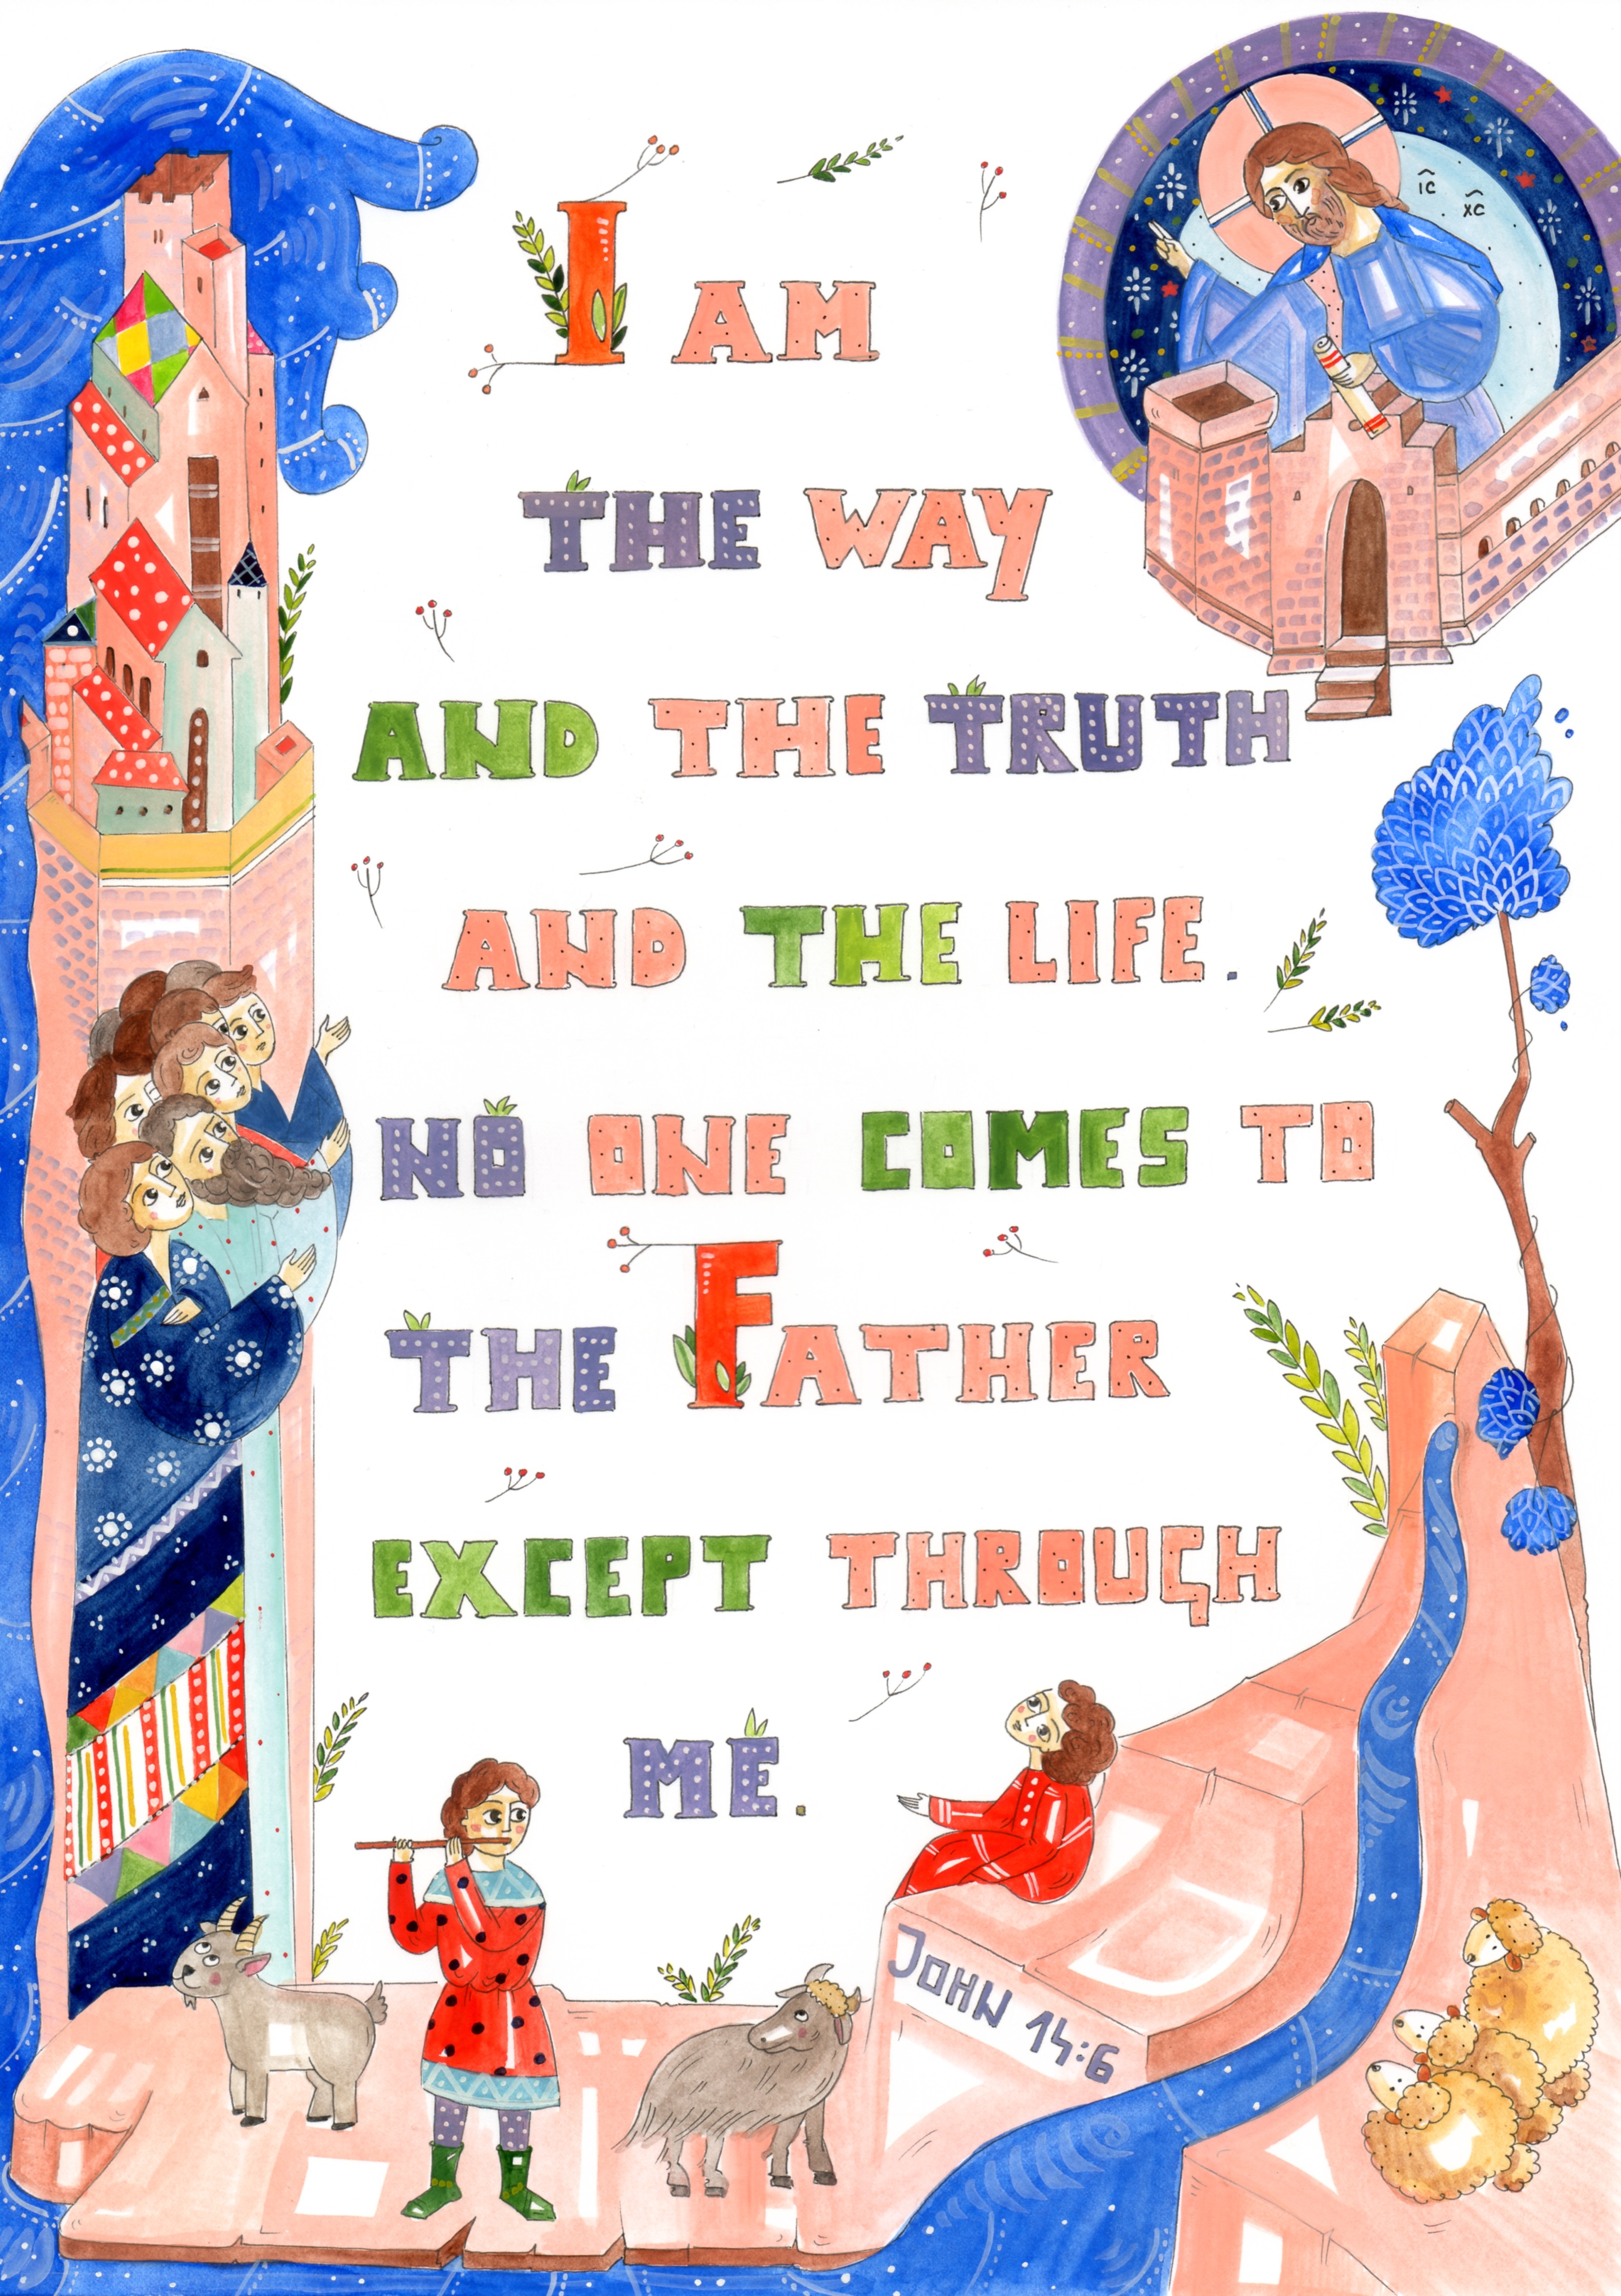 I AM
THE WAY
AND THE TRUTH
AND THE LIFE.
NO ONE COMES TO
THE FATHER
EXCEPT THROUGH
ME.
IC XC
JOHN 14:6